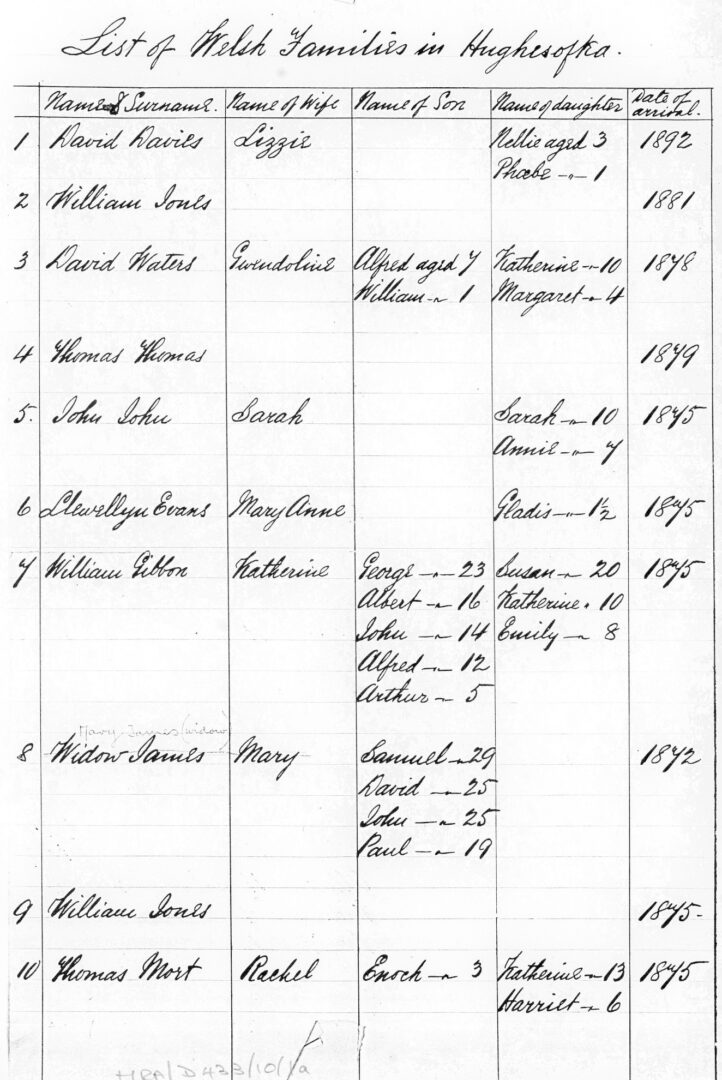 List of Welsh Families in Hughesofka.
Name & Surname. Name of Wife Name of Son Name of daughter Date of arrival.
1 David Davies Lizzie Nellie aged 3 1892
Phoebe -"- 1
2 William Jones 1881
3 David Waters Gwendoline Alfred aged 7 Katherine -"- 10 1878
William -"- 1 Margaret -"- 4
4 Thomas Thomas 1879
5. John John Sarah Sarah -"- 10 1875
Annie -"- 7
6 Llewellyn Evans Mary Anne Gladis -"- 1½ 1875
7 William Gibbon Katherine George -"- 23 Susan -"- 20 1875
Albert -"- 16 Katherine " 10
John -"- 14 Emily -"- 8
Alfred -"- 12
Arthur -"- 5
Mary James (widow)
8 Widow James Mary Samuel -"- 29 1872
David -"- 25
John -"- 25
Paul -"- 19
9 William Jones 1875-
10 Thomas Mort Rachel Enoch -"- 3 Katherine -"- 13 1875
Harriet -"- 6
HRA/D433/10/1a